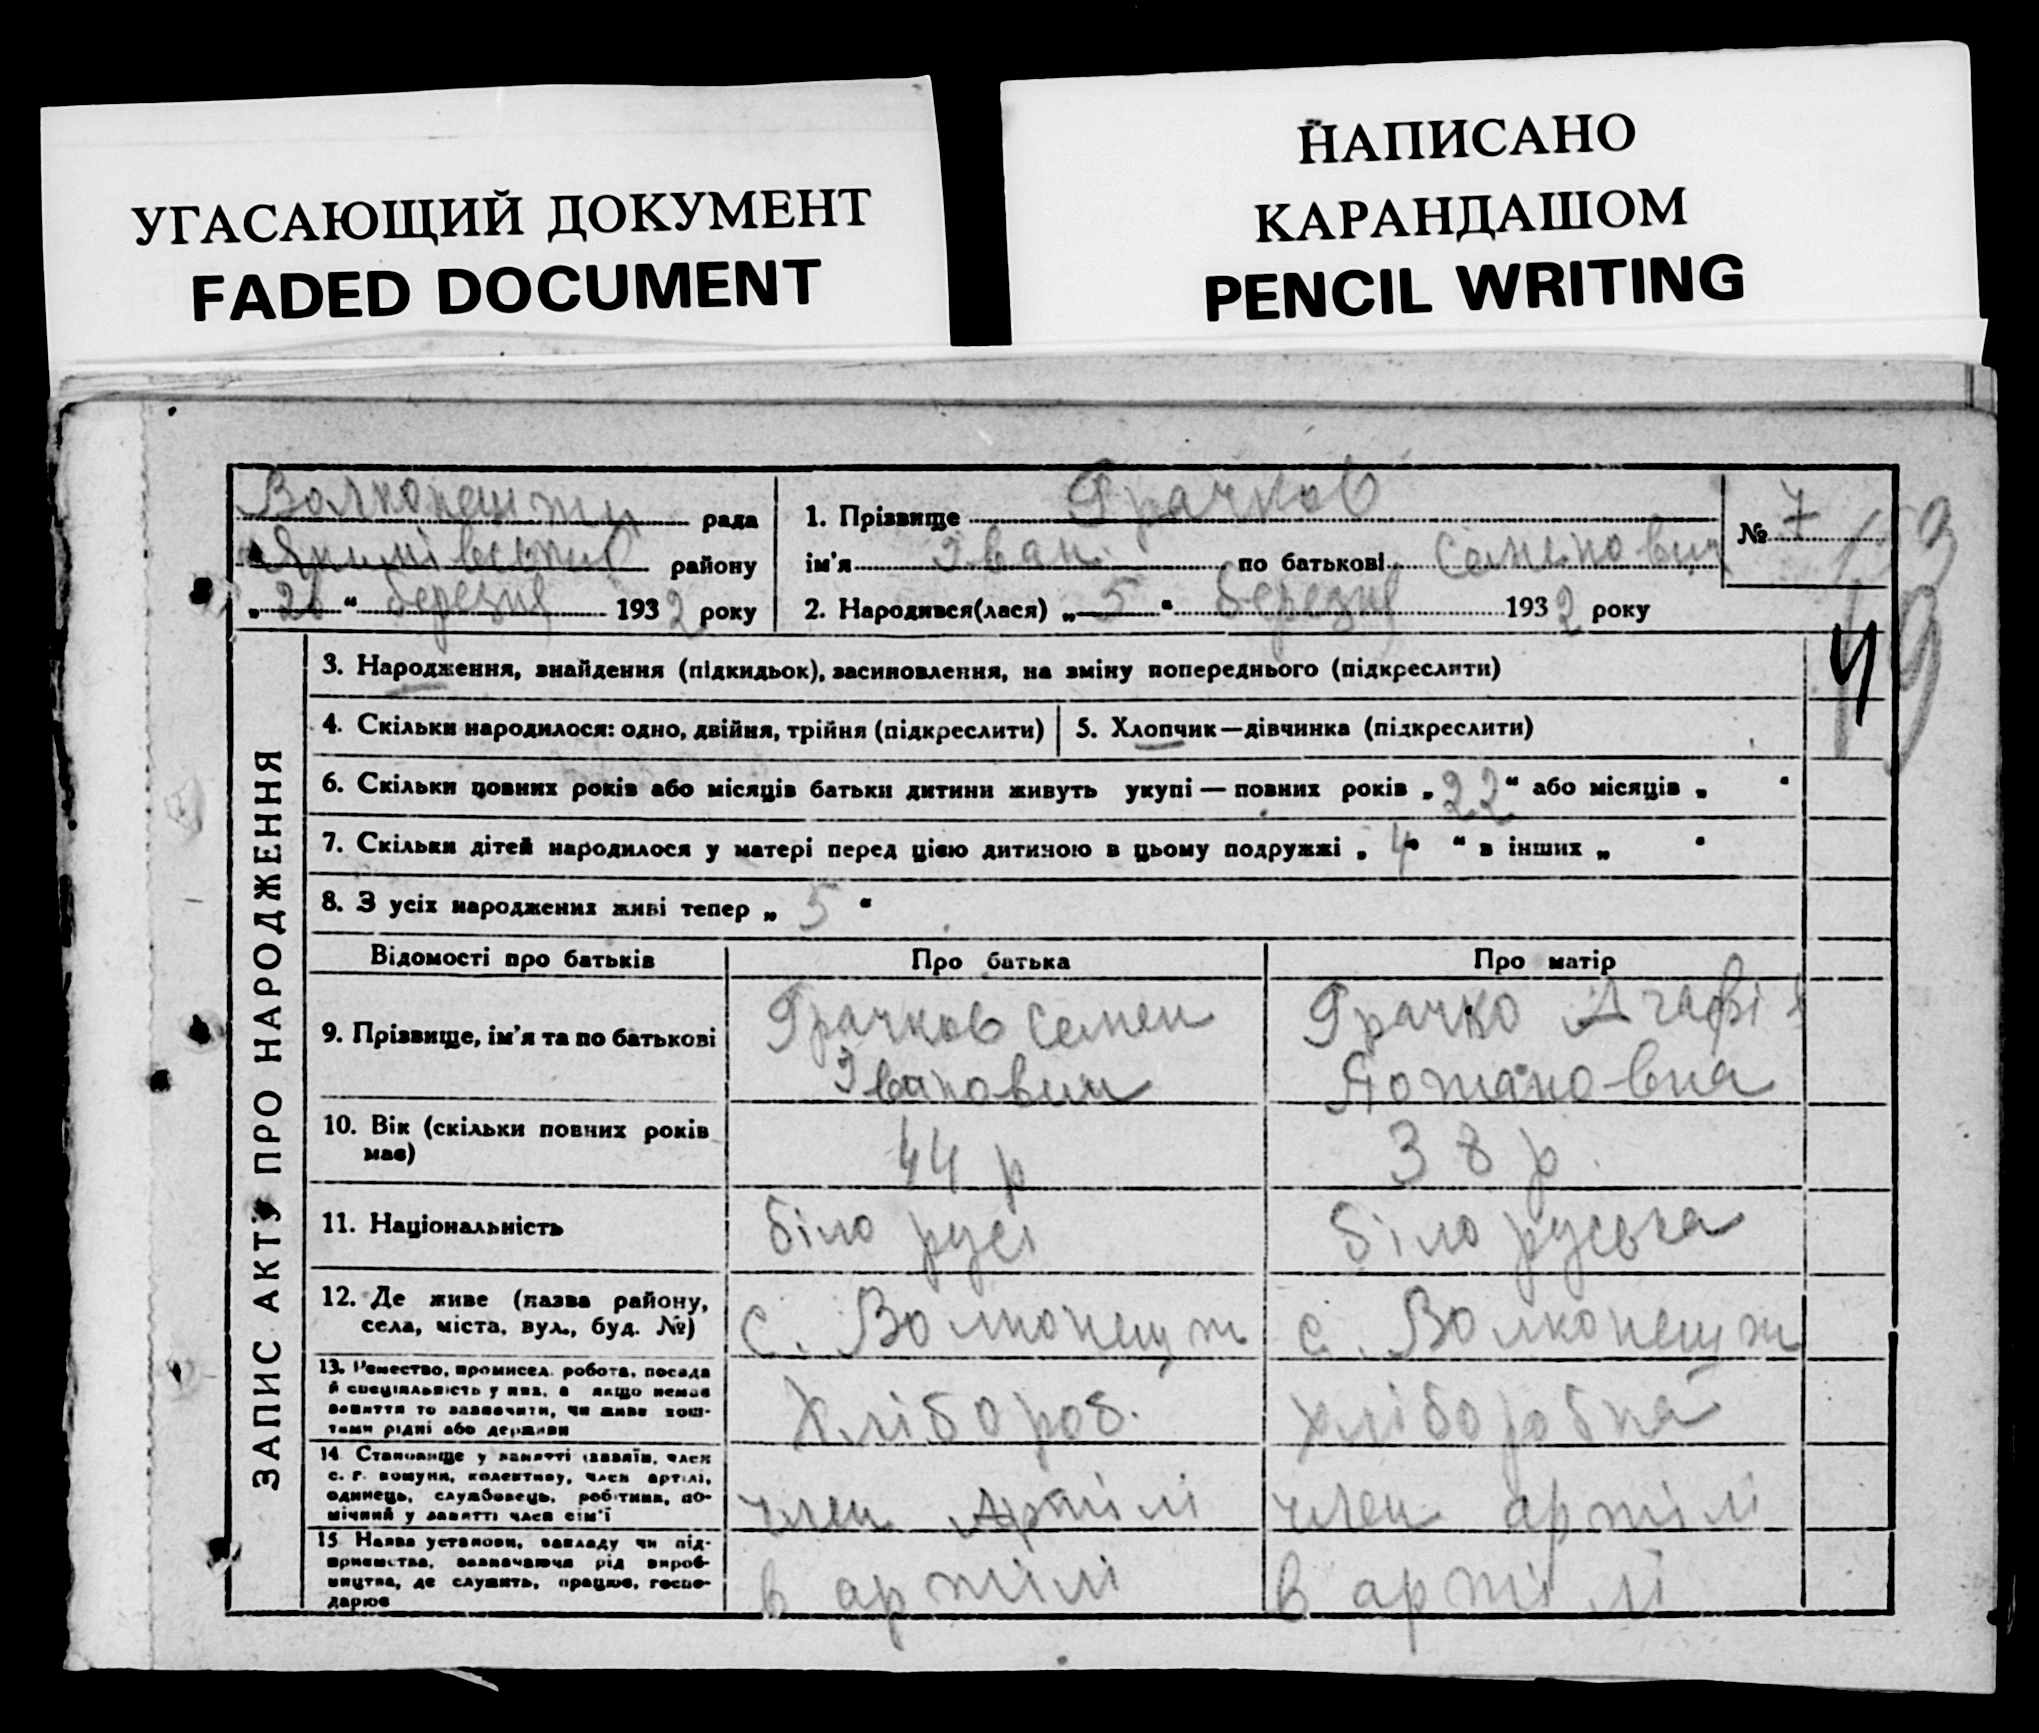 УГАСАЮЩИЙ ДОКУМЕНТ
FADED DOCUMENT
НАПИСАНО
КАРАНДАШОМ
PENCIL WRITING
Волконешти рада
Якимівського району
„ 26 “ березня 1932 року
1. Прізвище Грачков
ім'я Іван по батькові Семенович
2. Народився(лася) „ 5 “ березня 1932 року
№ 7
ЗАПИС АКТУ ПРО НАРОДЖЕННЯ
3. Народження, знайдення (підкидьок), засиновлення, на зміну попереднього (підкреслити)
4. Скільки народилося: одно, двійня, трійня (підкреслити)
5. Хлопчик—дівчинка (підкреслити)
6. Скільки повних років або місяців батьки дитини живуть укупі — повних років „ 22 “ або місяців „ “
7. Скільки дітей народилося у матері перед цією дитиною в цьому подружжі „ 4 “ в інших „ “
8. З усіх народжених живі тепер „ 5 “
Відомості про батьків Про батька Про матір
9. Прізвище, ім'я та по батькові
Грачков Семен
Іванович
Грачко Агафія
Потаповна
10. Вік (скільки повних років
має)
44 р
38 р.
11. Національність
білорус
білоруська
12. Де живе (назва району,
села, міста, вул., буд. №)
с. Волконешт
с. Волконешт
13. Ремество, промисел, робота, посада
й спеціяльність у них, а якщо немає
заняття то зазначити, чи живе кош-
тами рідні або держави
Хлібороб.
хліборобка
14. Становище у занятті (хазяїн, член
с. г. комуни, колективу, член артілі,
одинець, службовець, робітник, по-
мічний у занятті член сім'ї
член артілі
член артілі
15. Назва установи, закладу чи під-
приємства, зазначаючи рід вироб-
ництва, де служить, працює, госпо-
дарює
в артілі
в артілі